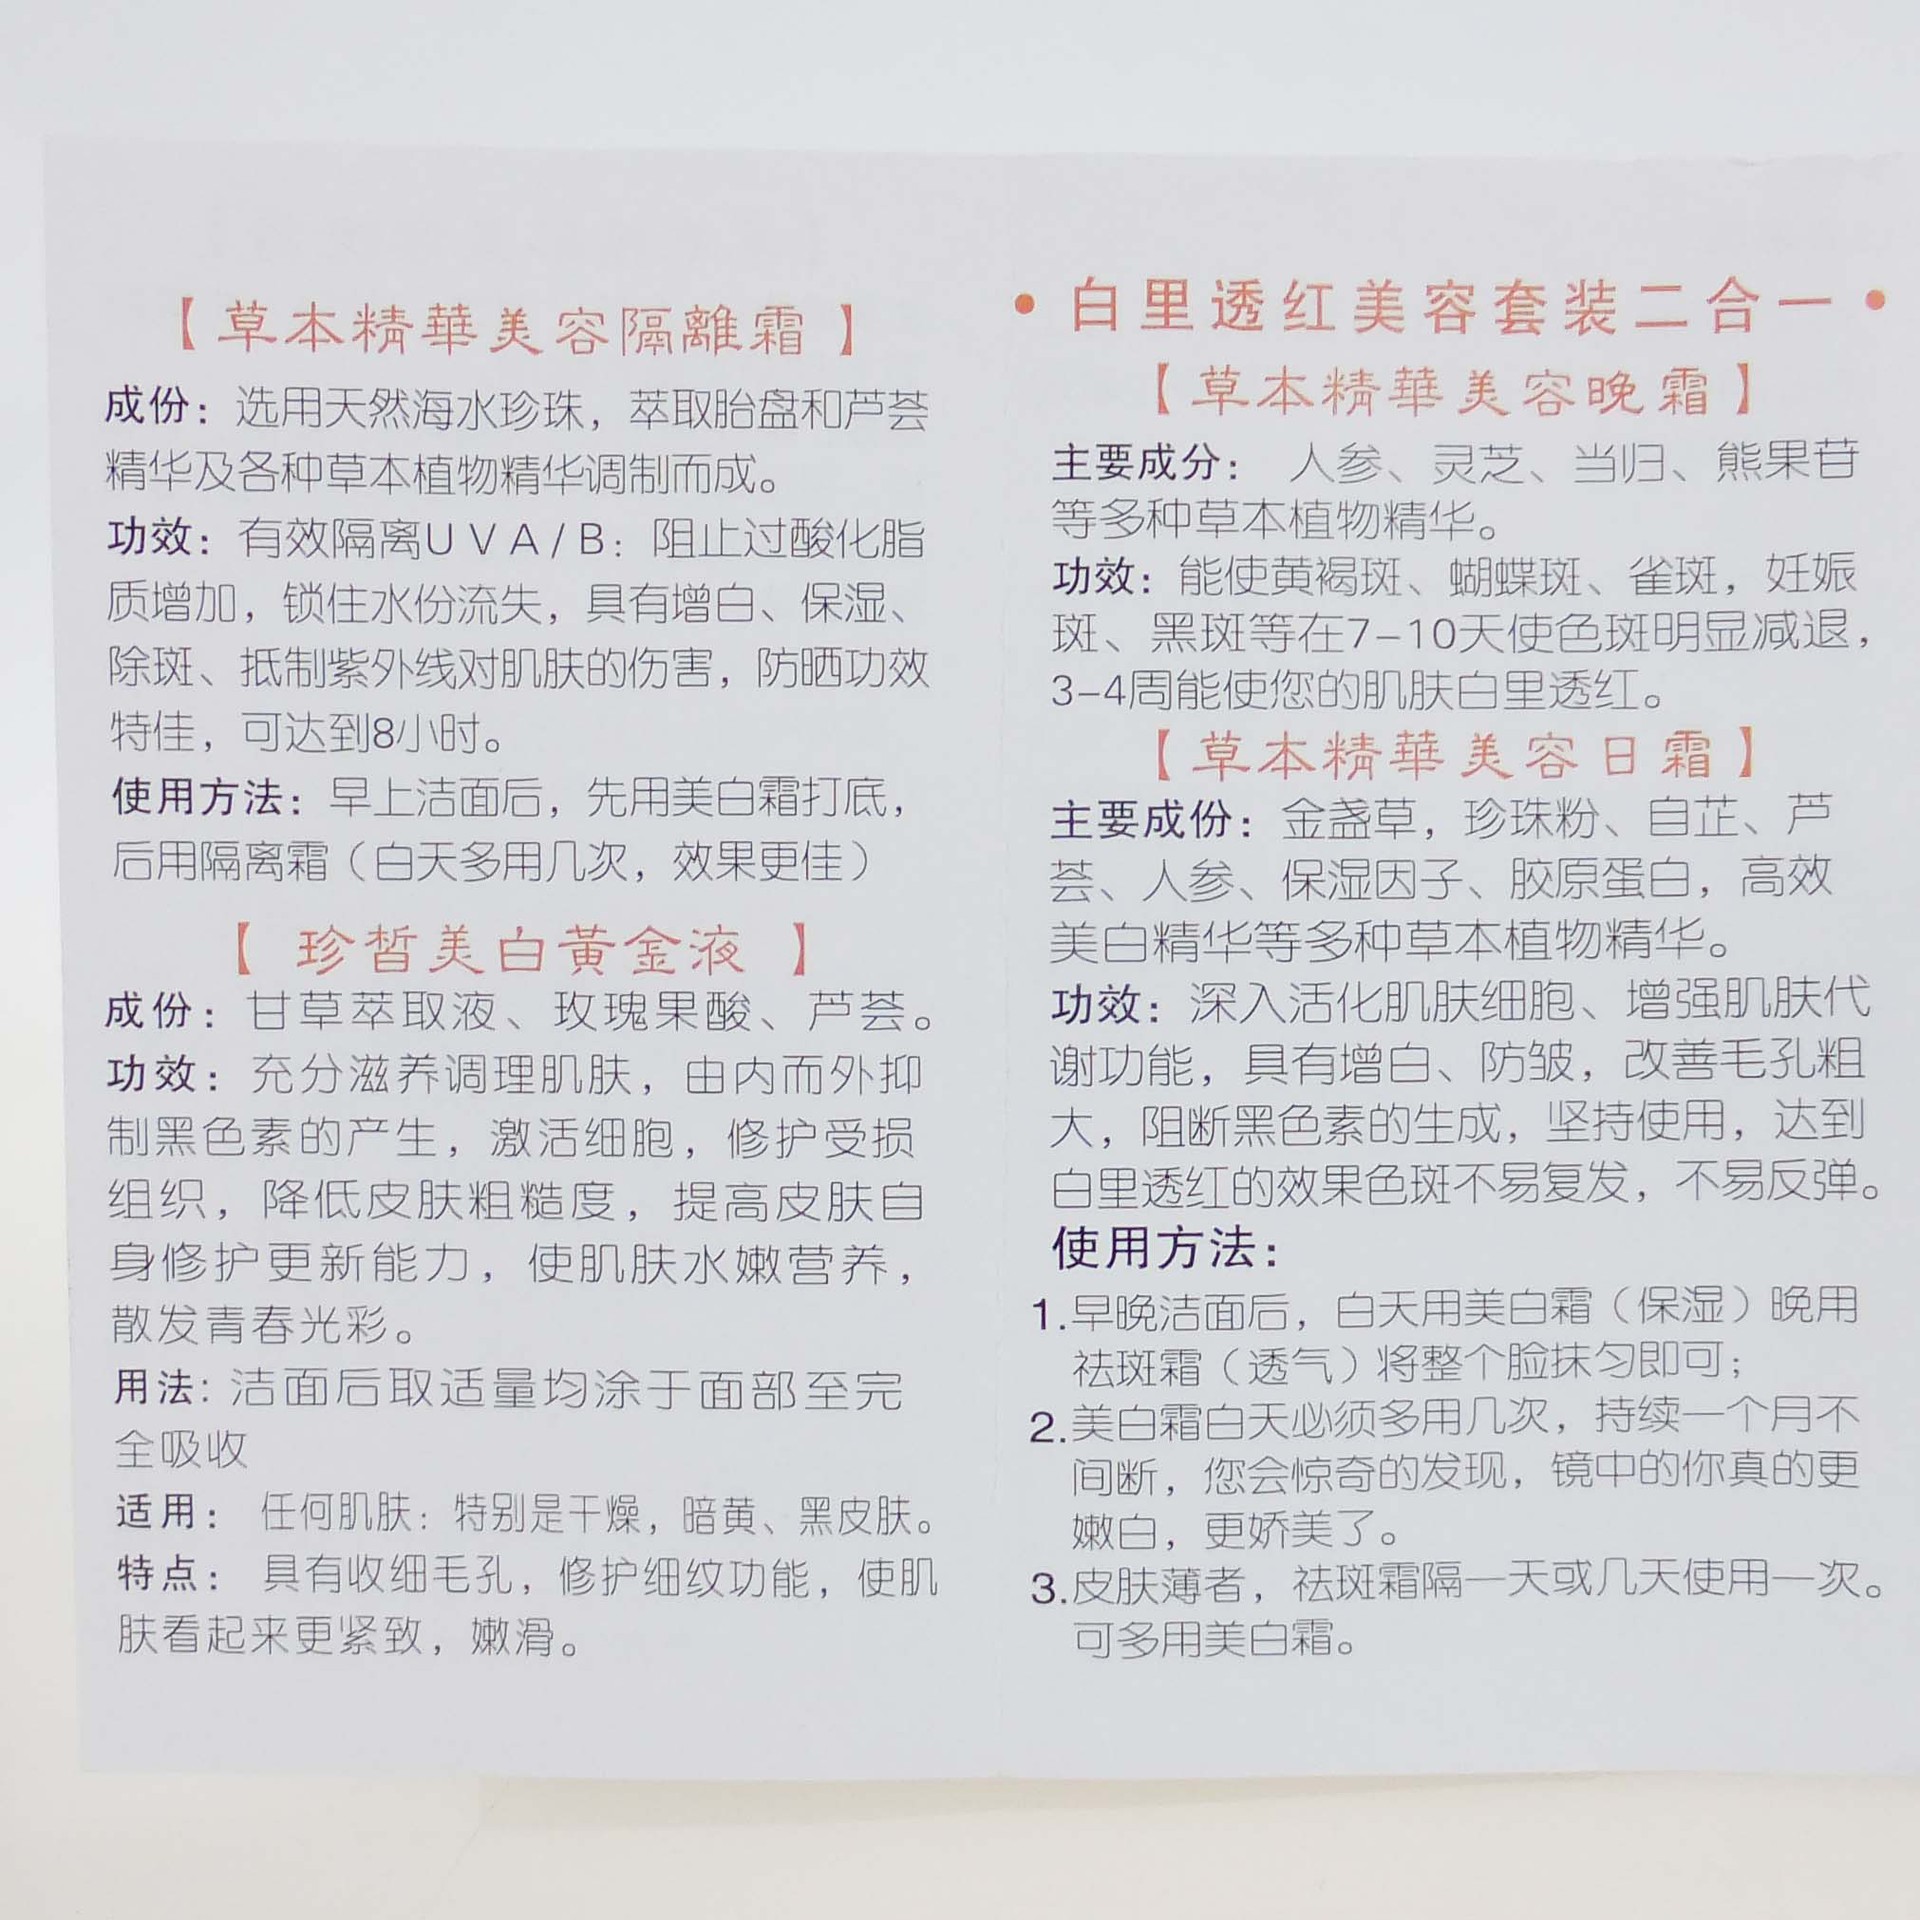 【草本精華美容隔離霜】
成份：选用天然海水珍珠，萃取胎盘和芦荟
精华及各种草本植物精华调制而成。
功效：有效隔离UVA/B：阻止过酸化脂
质增加，锁住水份流失，具有增白、保湿、
除斑、抵制紫外线对肌肤的伤害，防晒功效
特佳，可达到8小时。
使用方法：早上洁面后，先用美白霜打底，
后用隔离霜（白天多用几次，效果更佳）
【 珍皙美白黃金液 】
成份：甘草萃取液、玫瑰果酸、芦荟。
功效：充分滋养调理肌肤，由内而外抑
制黑色素的产生，激活细胞，修护受损
组织，降低皮肤粗糙度，提高皮肤自
身修护更新能力，使肌肤水嫩营养，
散发青春光彩。
用法：洁面后取适量均涂于面部至完
全吸收
适用： 任何肌肤：特别是干燥，暗黄、黑皮肤。
特点： 具有收细毛孔，修护细纹功能，使肌
肤看起来更紧致，嫩滑。
•白里透红美容套装二合一•
【草本精華美容晚霜】
主要成分： 人参、灵芝、当归、熊果苷
等多种草本植物精华。
功效：能使黄褐斑、蝴蝶斑、雀斑，妊娠
斑、黑斑等在7-10天使色斑明显减退，
3-4周能使您的肌肤白里透红。
【草本精華美容日霜】
主要成份：金盏草，珍珠粉、自芷、芦
荟、人参、保湿因子、胶原蛋白，高效
美白精华等多种草本植物精华。
功效：深入活化肌肤细胞、增强肌肤代
谢功能，具有增白、防皱，改善毛孔粗
大，阻断黑色素的生成，坚持使用，达到
白里透红的效果色斑不易复发，不易反弹。
使用方法：
1.早晚洁面后，白天用美白霜（保湿）晚用
祛斑霜（透气）将整个脸抹匀即可；
2.美白霜白天必须多用几次，持续一个月不
间断，您会惊奇的发现，镜中的你真的更
嫩白，更娇美了。
3.皮肤薄者，祛斑霜隔一天或几天使用一次。
可多用美白霜。